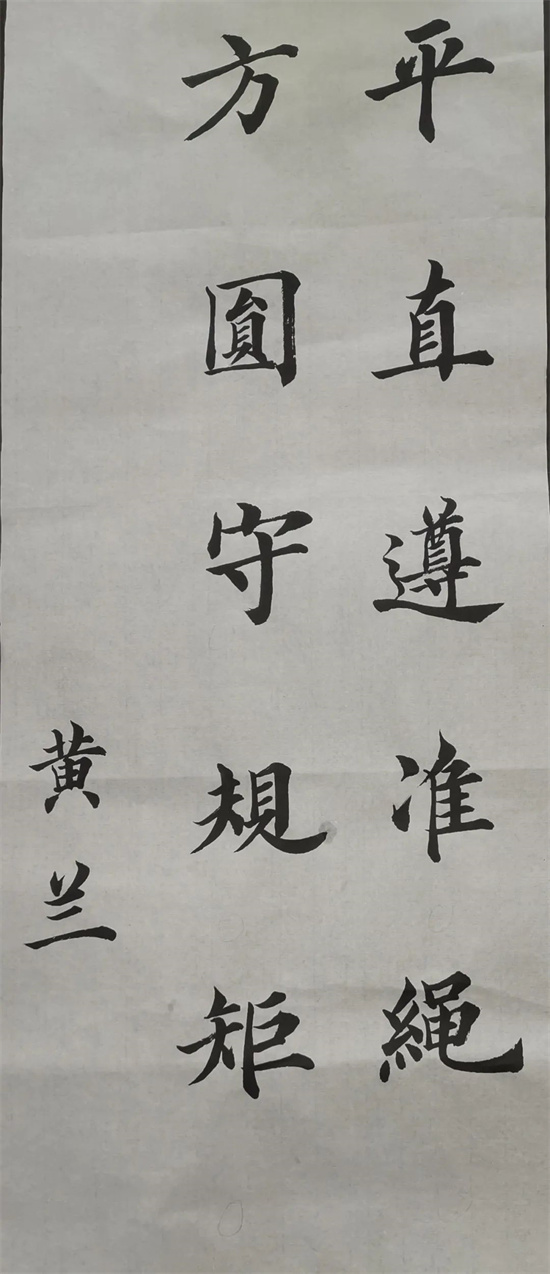 平直遵准繩
方圓守規矩
黄兰